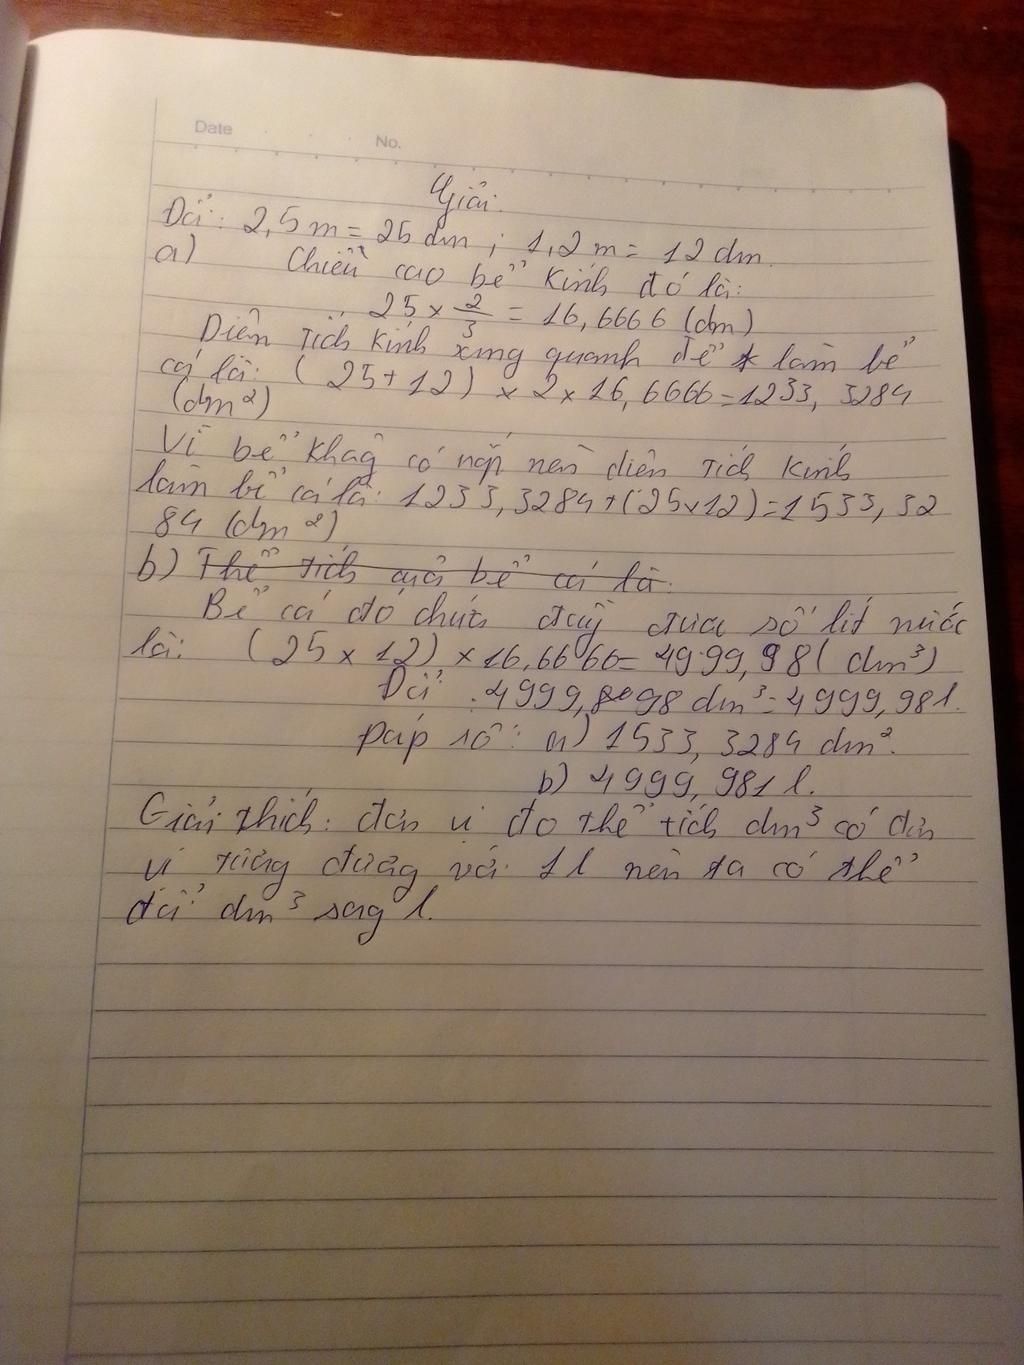 Date
No.
Giải
Đổi: 2,5 m = 25 dm ; 1,2 m = 12 dm.
a) Chiều cao bể kính đó là:
25 x 2/3 = 16,6666 (dm)
Diện tích kính xung quanh để làm bể
cá là: (25 + 12) x 2 x 16,6666 = 1233,3284
(dm²)
Vì bể không có nắp nên diện tích kính
làm bể cá là: 1233,3284 + (25 x 12) = 1533,32
84 (dm²)
b) Thể tích của bể cá là:
Bể cá đó chứa được số lít nước
là: (25 x 12) x 16,6666 = 4999,98 (dm³)
Đổi : 4999,98 dm³ = 4999,98 l.
Đáp số: a) 1533,3284 dm².
b) 4999,981 l.
Giải thích: đơn vị đo thể tích dm³ có đơn
vị tương đương với 1 l nên ta có thể
đổi dm³ sang l.